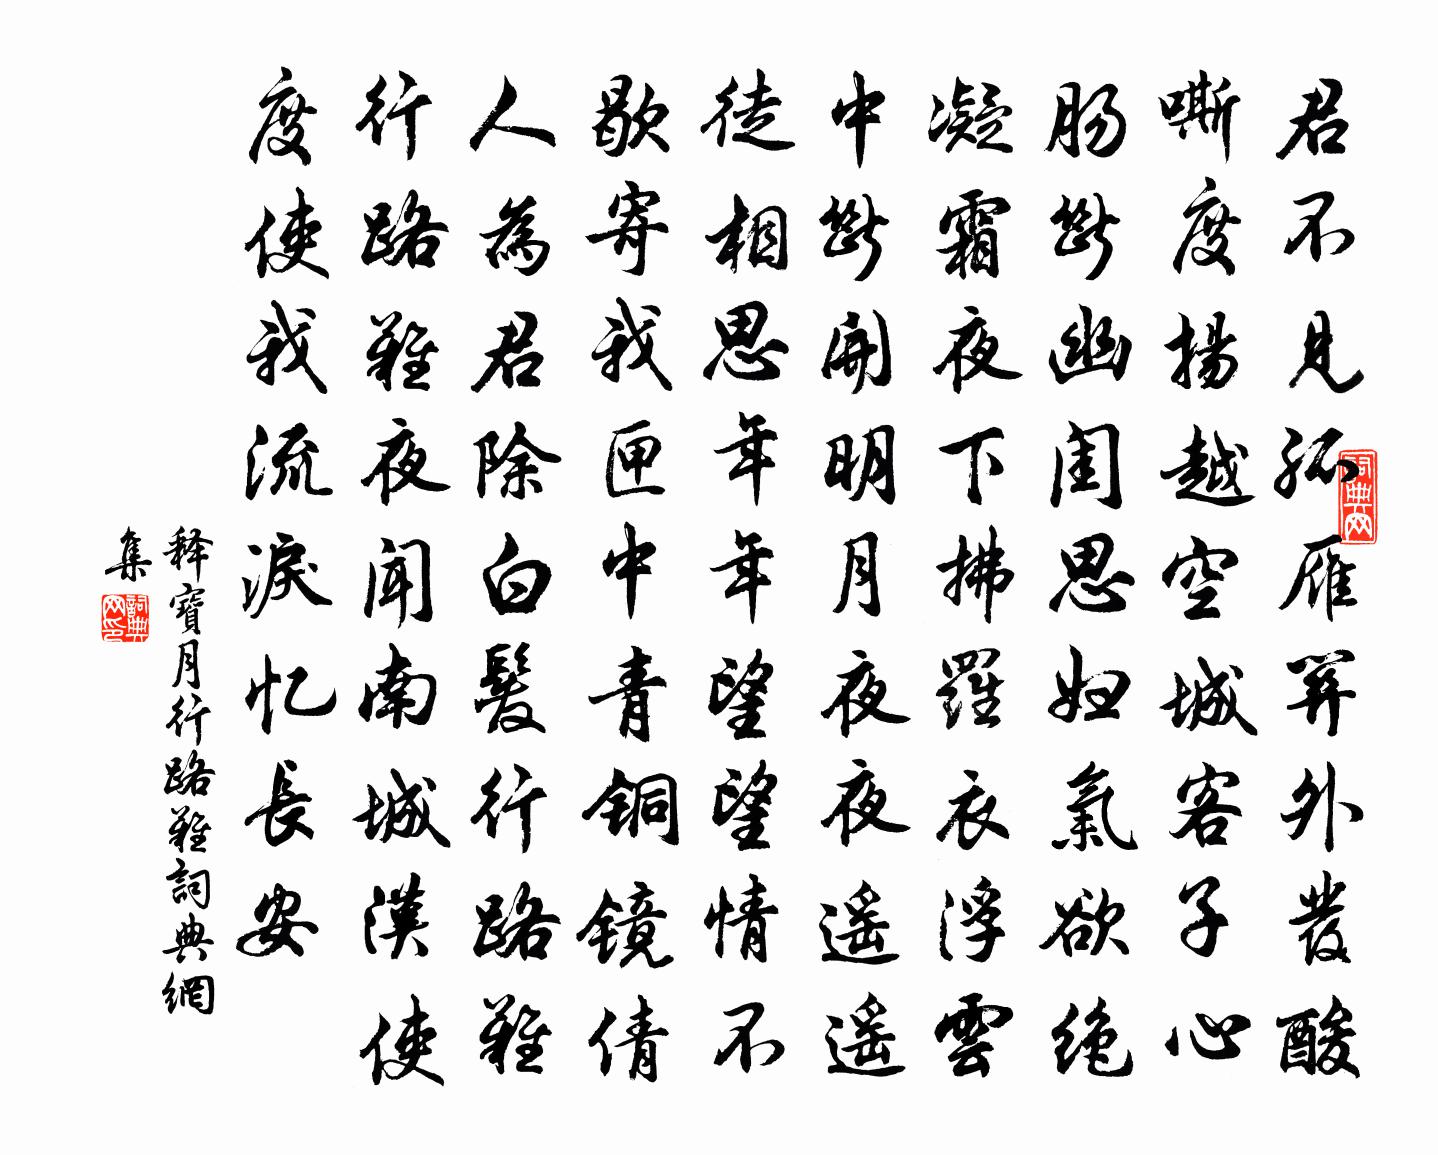 君不見孤雁關外發酸
嘶度揚越空城客子心
肠斷幽閨思婦氣欲绝
凝霜夜下拂羅衣浮雲
中斷開明月夜夜遥遥
徒相思年年望望情不
歇寄我匣中青铜镜倩
人為君除白髮行路難
行路難夜聞南城漢使
度使我流淚忆長安
释寶月行路難詞典網
集
詞典网
詞典网印